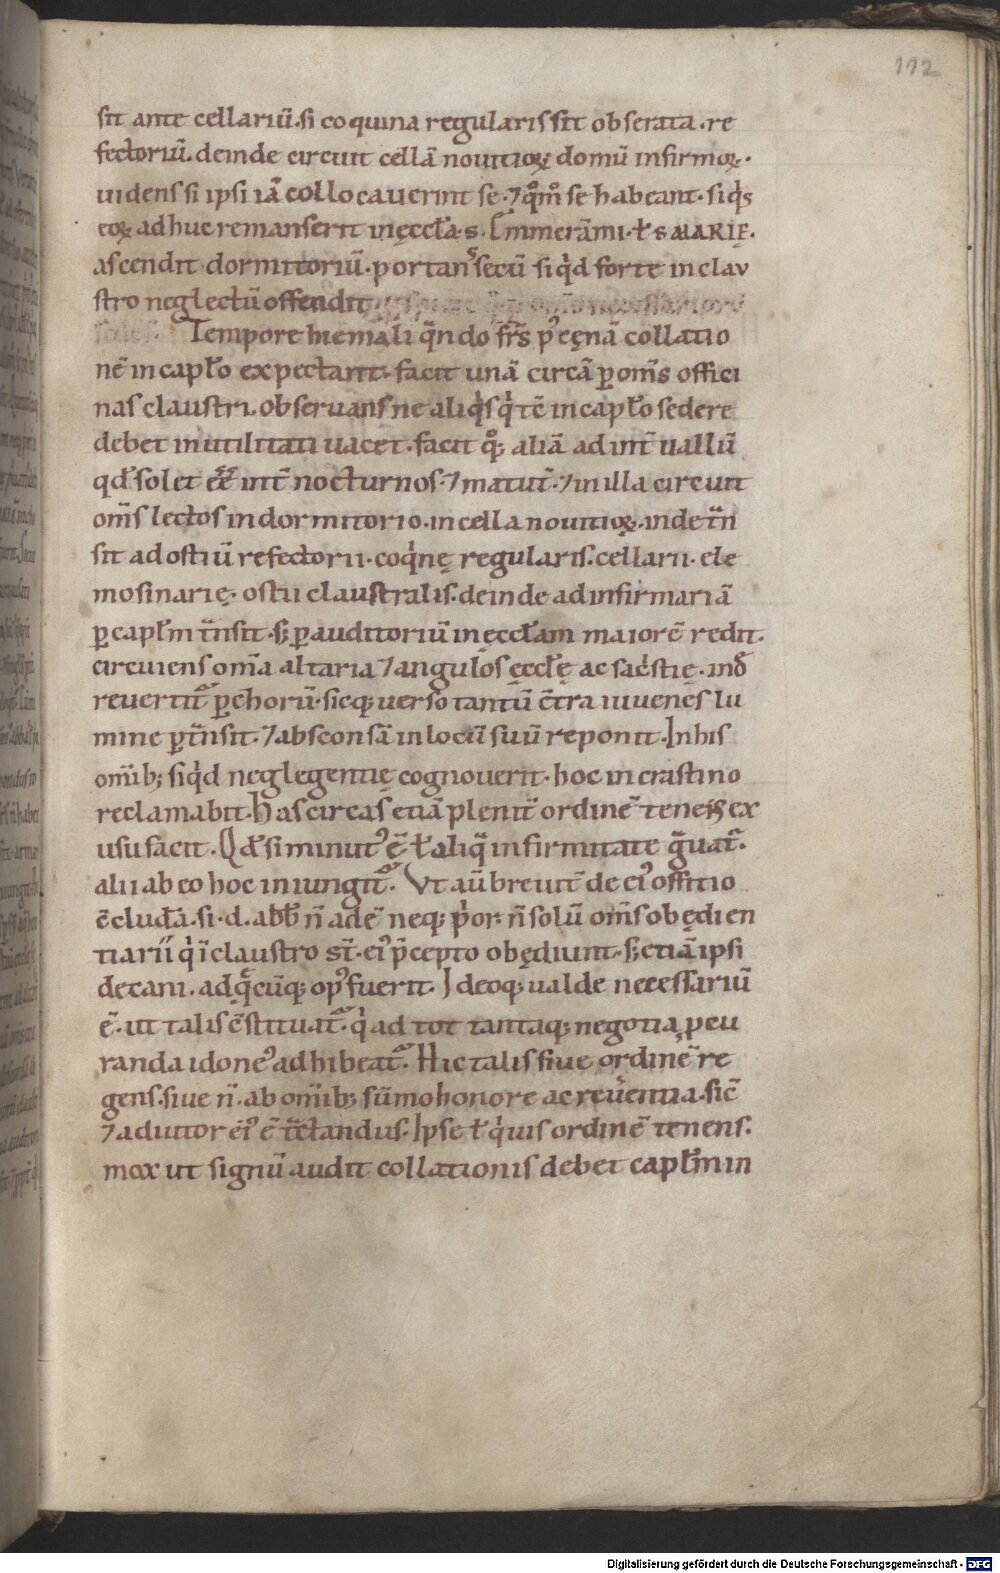 112
sit ante cellariū. si coquina regularis sit obserata. re
fectoriū. deinde circuit cellā nouitioꝝ domū infirmoꝝ.
uidens si ipsi iā collocauerint se. ⁊ qͦmͦ se habeant. si qͥs
eoꝝ adhuc remanserit in ęccła. S. Emmerāmi. ł S MARIĘ.
ascendit dormitoriū. portans secū si qͥd forte in clau
stro neglectū offendit
Tempore hiemali qᷓndo fr̄s p᷒ cęnā collatio
nē in capł̓o expectant. facit unā circā ꝑ om̄s offici
nas claustri. obseruans ne aliqͥs qͥ tc̄ in capł̓o sedere
debet inutilitati uacet. facit qͦꝫ aliā ad int̄uallū
qd̓ solet eē̄ int̄ nocturnos. ⁊ matut̄. ⁊ in illa circuit
om̄s lectos in dormitorio. in cella nouitioꝝ. inde tᷓn
sit ad ostiū refectorii. coqͥnę regularis. cellarii. ele
mosinarię. ostii claustralis. deinde ad infirmariā
ꝑ capł̓m tᷓnsit. sꝫ ꝑ auditoriū in ęccłam maiorē redit.
circuiens om̄a altaria ⁊ angulos ęccłę ac sac̓stię. ind̄
reuertit᷑ ꝑ chorū. sicqꝫ uerso tantū c̄tra iuuenes lu
mine ꝑtᷓnsit. ⁊ absconsā in locū suū reponit. In his
om̄ibꝫ si qͥd neglegentię cognouerit. hoc in crastino
reclamabit. Has circas etiā plenit̄ ordinē tenens ex
usu facit. Qd̓ si minut᷒ ē̄ ł aliqᷓ infirmitate gᷓuat᷑.
alii ab eo hoc iniungit᷑. Vt aū breuit̄ de ei᷒ offitio
c̄cludā. si. d. abb̄ n̄ adē̄ neqꝫ p̓or. n̄ solū om̄s obędien
tiarii qͥ ī claustro st̄. ei᷒ p̄cepto obędiunt. sꝫ etiā ipsi
decani. ad qᷓcūqꝫ op᷒ fuerit. Ideoqꝫ ualde necessariū
ē̄. ut talis c̄stituat᷑. qͥ ad tot tantaqꝫ negotia ꝓcu
randa idone᷒ adhibeat᷑. Hic talis siue ordinē re
gens. siue n̄. ab om̄ibꝫ sūmo honore ac reuerentia. sic̄
⁊ adiutor ei᷒ ē̄ tᷓctandus. Ipse ł qͥuis ordinē tenens.
mox ut signū audit collationis debet capł̓m in
Digitalisierung gefördert durch die Deutsche Forschungsgemeinschaft - DFG